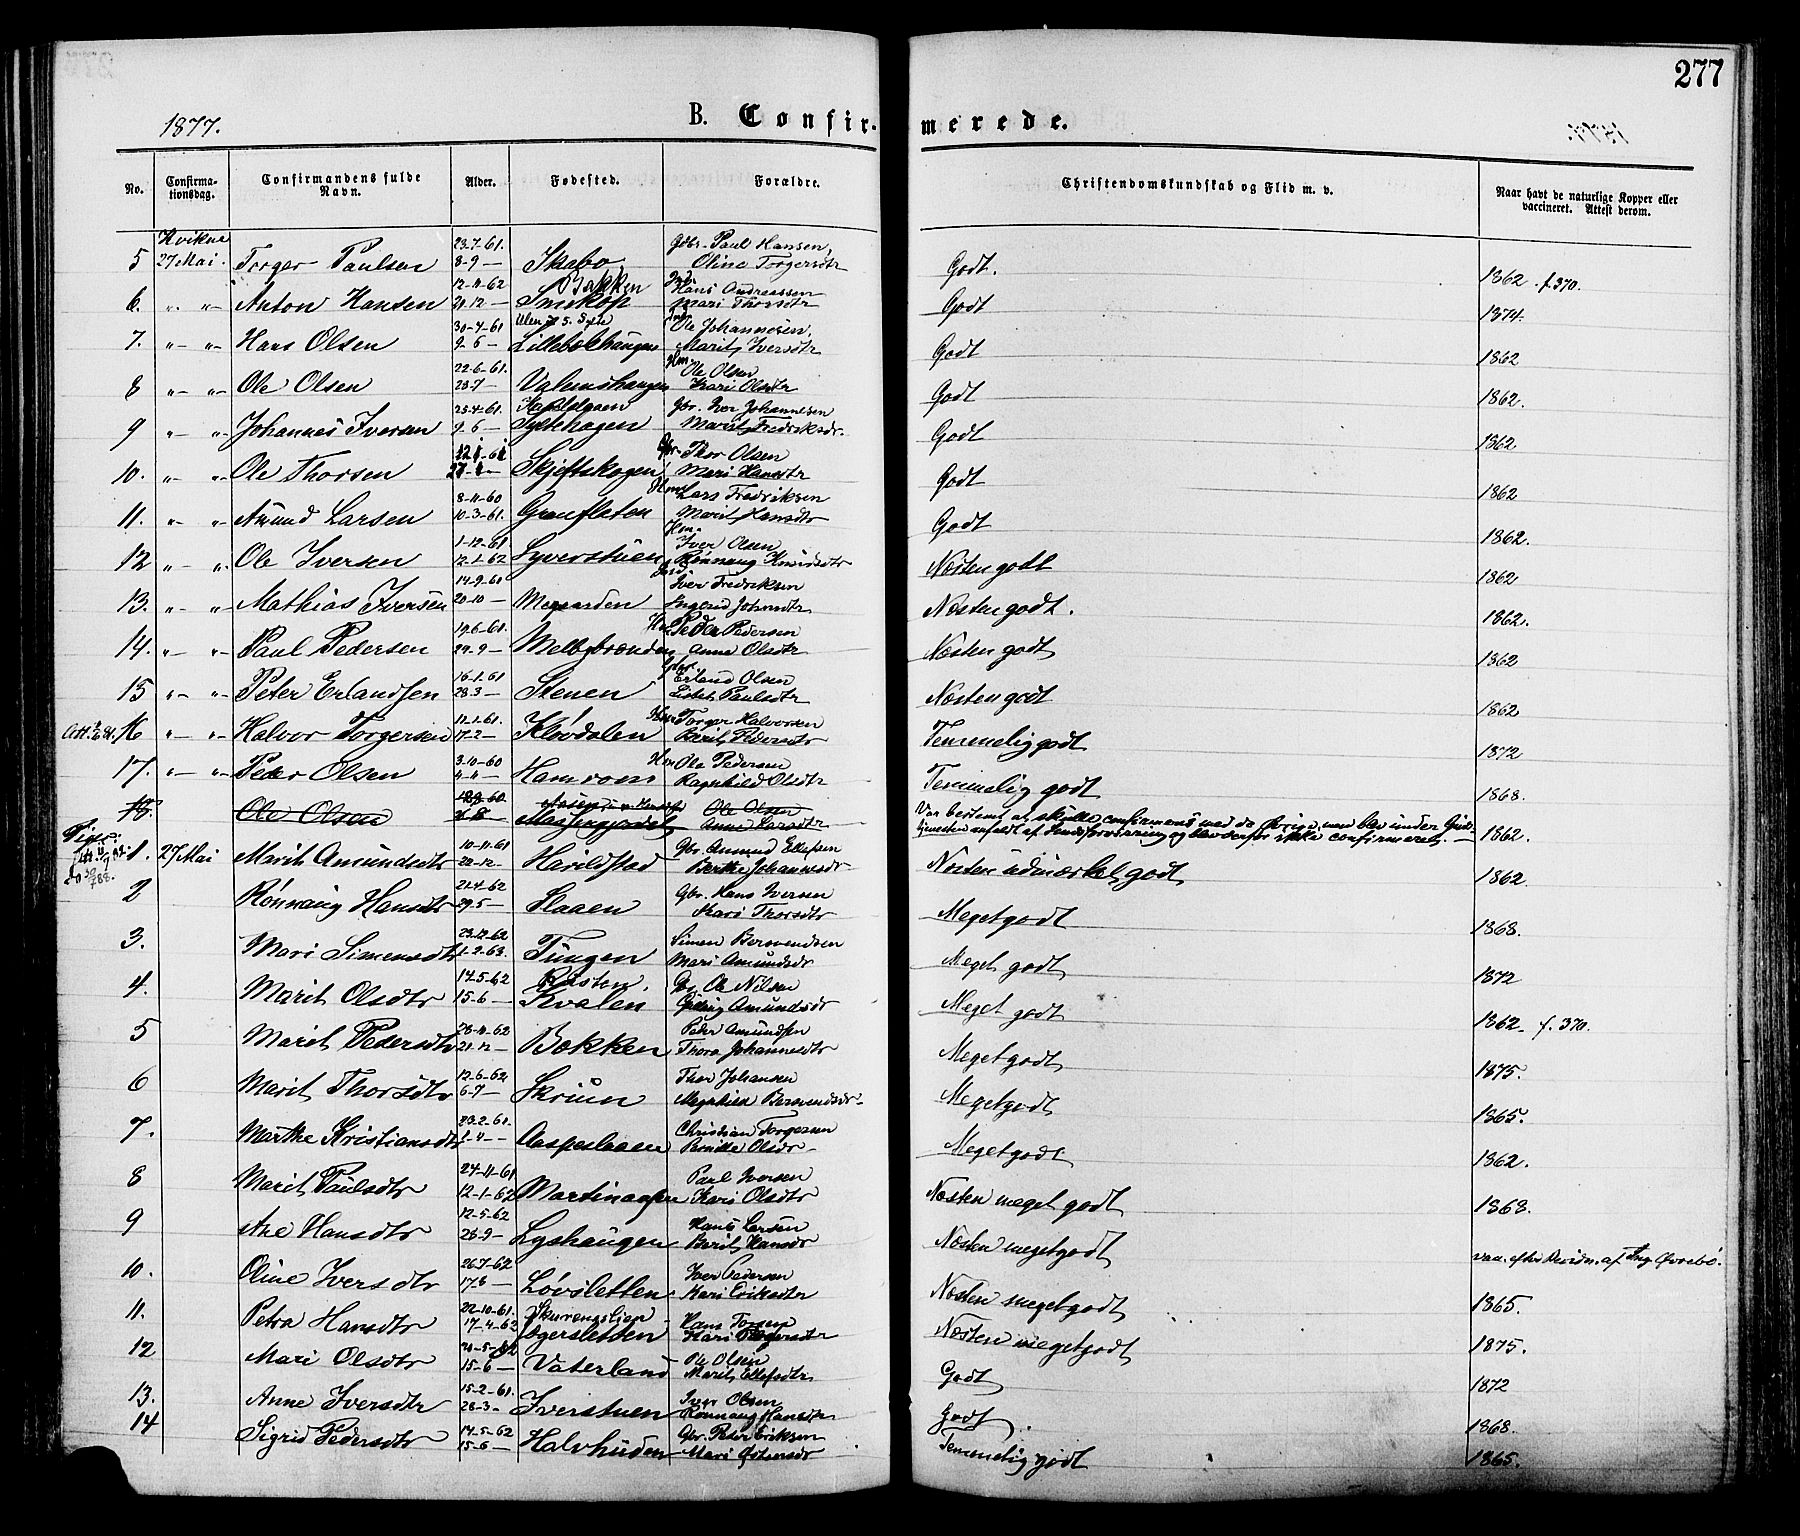 277
1877.
B. Confirmerede.
No.
Confirmationsdag.
Confirmandens fulde Navn.
Alder.
Fødested.
Forældre.
Christendomskundskab og Flid m. v.
Naar havt de naturlige Kopper eller vaccineret. Attest derom.
Kvikne
5 27 Mai Torger Paulsen 23-7-61. 8-9- Skabo Gdbr. Paul Hansen Oline Torgersdtr Godt. 1862. f. 370.
6. " " Anton Hansen 12-11-62 21-12- Bakken Hans Andreassen Mari Thorsdtr Godt 1874.
7. " " Hans Olsen 30-4-61 9-6- Lillebakhaugen Ole Johannesen Marit Iversdtr Godt 1862
8 " " Ole Olsen 22-6-61. 28-7- Hm Ole Olsen Kari Olsdtr Godt 1862.
9 " " Johannes Iversen 23-4-61. 9-6- Gbr. Iver Johannesen Marit Fredriksdr. Godt 1862
10. " " Ole Thorsen Skjeftskogen Gbr. Thor Olsen Mari Hansdtr Godt 1862
11. " " Amund Larsen 8-11-60 10-3-61. Granfleten Lars Fredriksen Marit Hansdtr Godt 1862.
12 " " Ole Iversen 1-12-61 12-1-62 Lyverstuen Hm. Iver Olsen Rønnaug Knudsdtr Næsten godt 1862
13. " " Mathias Iversen 14-9-60 20-10- Mogaarden Iver Fredriksen Ingrid Johnsdtr Næsten godt. 1862.
14. " " Paul Pedersen 19-6-61. 29-9- Melbybrænden Peder Pedersen Anne Olsdtr Næsten godt 1862
15 " " Peter Erlandsen 16-1-61 28-3- Stenen Erland Olsen Lisbet Paulsdtr Næsten godt 1862
16 " " Halvor Torgersen 11-1-61. 17-2- Kløvdalen Hm Torger Halvorsen Berit Pedersdtr Temmelig godt 1872
17. " " Peder Olsen 3-10-60 4-11- Hamrom Hm Ole Pedersen Ragnhild Olsdtr Temmelig godt 1868.
18. Ole Olsen Ole Olsen Anne Larsdtr Var bestemt at skulle confirmeres med de Øvrige, men blev under Gudstjenesten anfaldt af Sindsforvirring og blev derfor ikke confirmeret. 1862.
Piger
1. 27 Mai Marit Amundsdtr 10-11-61 20-12- Harildstad Gbr. Amund Ellefsen Berthe Johannesdr Næsten udmærket godt 1862.
2 Rønnaug Hansdtr 21-4-62 29-5- Slaaen Gbr. Hans Iversen Kari Thorsdtr Meget godt 1868.
3. Mari Simensdtr 23-12-62 1-2-63. Tungen Simen Bersvendsen Mari Amundsdr Meget godt 1872
4. Marit Olsdtr 14-5-62 15-6- Kvalen Ole Nilsen Amundsdr Meget godt 1862- f. 370.
5 Marit Pedersdtr 28-11-62 21-12- Bækken Peder Amundsen Thora Johannesdtr Meget godt 1875.
6 Marit Thorsdtr 12-6-62 6-7- Skriun Thor Johansen Magnhild Bersvendsdr Meget godt 1865.
7. Marthe Kristiansdtr 23-2-61. 1-4- Aaspeslaaen Christian Torgersen Pernille Olsdr Meget godt 1862.
8 Marit Paulsdtr 24-11-61 12-1-62 Paul Iversen Kari Olsdtr Næsten meget godt 1868.
9 Ane Hansdtr 12-5-62 28-9- Lyshaugen Hans Larsen Berit Hansdr Næsten meget godt vac. efter Revidn. af Ing. Øvrebø.
10. Oline Iversdtr 26-7-62 17-8- Løvsletten Iver Pedersen Mari Eriksdtr Næsten meget godt 1865.
11. Petra Hansdtr 22-10-61. 17-4-62 Ægersletten Næsten meget godt 1875.
12 Mari Olsdtr 15-6- Vaterland Ole Olsen Marit Ellefsdtr Godt 1872
13. Anne Iversdtr 15-2-61. 28-3- Iverstuen Iver Olsen Rønnaug Hansdtr Godt 1868.
14 Sigrid Pedersdtr 14-5-62 15-6- Halvhuden Gbr. Peder Eriksen Mari Temmelig godt 1865.